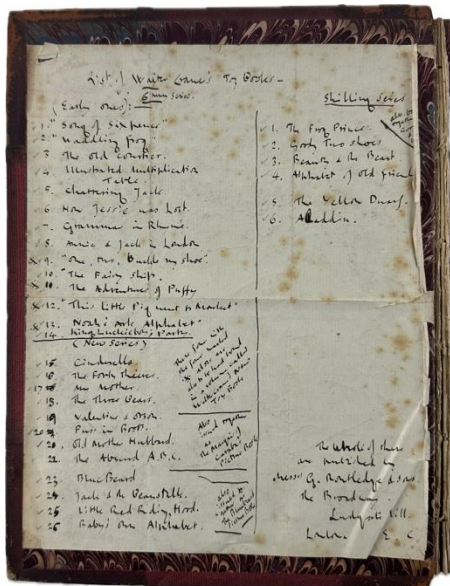 List of Walter Crane's Toy Books -
6d series.
(Early ones):-
1. "Song of Sixpence"
2. "Waddling frog
3. The old courtier.
4. Illustrated Multiplication
Table.
5. Chattering Jack
6. How Jessie was lost.
7. Grammar in Rhyme.
8. Annie & Jack in London
x 9. "One, two, buckle my shoe".
10. "The Fairy Ship.
x 11. The Adventures of Puffy
x 12. "This little Pig went to Market"
x 13. Noah's Ark Alphabet
14. King Luckieboy's Party.
(New Series)
15. Cinderella
16. The Forty Thieves.
17 My Mother.
18. The Three Bears.
19 Valentine & Orson.
Puss in Boots.
20. Old Mother Hubbard.
22. The Absurd A.B.C.
23. Blue Beard
24. Jack & the Beanstalk.
25. Little Red Riding Hood.
26. Baby's Own Alphabet.
These four with
the four marked
x also are
also to be had bound
in a volume called
Walter Crane's
Toy Books
Also
issued together
as
the Marquis of
Carabas'
Picture Book
also
issued to
Picture Book
Shilling Series
also
together
1. The Frog Prince.
2. Goody Two shoes
3. Beauty & the Beast
4. Alphabet of old friends
5. The Yellow Dwarf.
6. Aladdin.
The whole of these
are published by
Messrs G. Routledge & Sons
the Broadway
Ludgate Hill
London E C